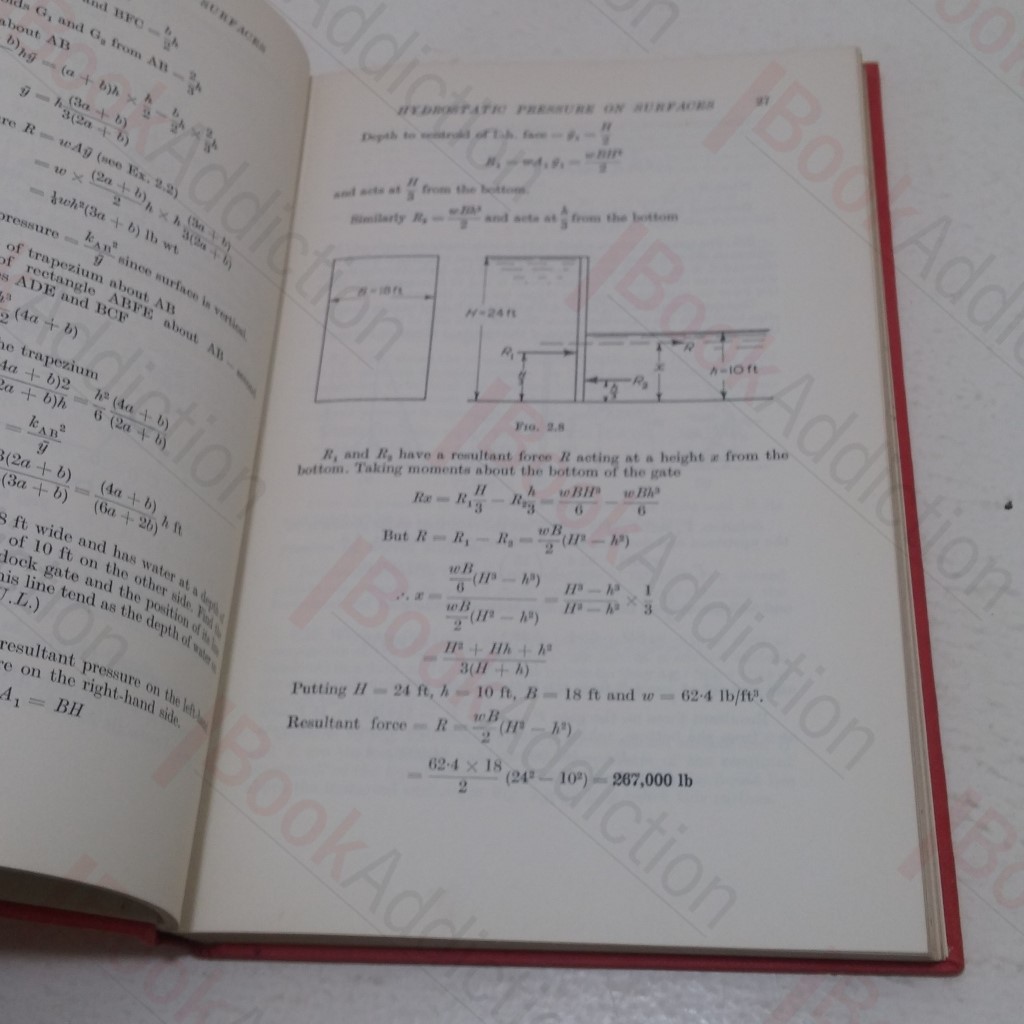 SURFACES
and BFC = b/2 h
G₁ and G₂ from AB = 2/3 h
about AB
b)hȳ = (a + b)h × h/2 − b/2 h × 2/3 h
ȳ = h (3a + b)/3(2a + b)
R = wAȳ (see Ex. 2.2)
= w × (2a + b)/2 h × h (3a + b)/3(2a + b)
= ⅙wh²(3a + b) lb wt
pressure = k_AB²/ȳ since surface is vertical
of trapezium about AB
of rectangle ABFE about AB −
ADE and BCF
(4a + b)
trapezium
(4a + b)2/(2a + b)h = h²/6 (4a + b)/(2a + b)
= k_AB²/ȳ
3(2a + b)/(3a + b) = (4a + b)/(6a + 2b) h ft
8 ft wide and has water at a depth of
of 10 ft on the other side. Find the
dock gate and the position of its line
this line tend as the depth of water
U.L.)
resultant pressure on the left-hand
on the right-hand side.
A₁ = BH
HYDROSTATIC PRESSURE ON SURFACES 27
Depth to centroid of l.h. face = ȳ₁ = H/2
R₁ = wA₁ȳ₁ = wBH²/2
and acts at H/3 from the bottom.
Similarly R₂ = wBh²/2 and acts at h/3 from the bottom
B=18 ft
H=24 ft
R₁
H/3
R
x
h=10 ft
R₂
h/3
FIG. 2.8
R₁ and R₂ have a resultant force R acting at a height x from the
bottom. Taking moments about the bottom of the gate
Rx = R₁ H/3 − R₂ h/3 = wBH³/6 − wBh³/6
But R = R₁ − R₂ = wB/2 (H² − h²)
∴ x = wB/6 (H³ − h³) / wB/2 (H² − h²) = H³ − h³/H² − h² × 1/3
= H² + Hh + h²/3(H + h)
Putting H = 24 ft, h = 10 ft, B = 18 ft and w = 62·4 lb/ft³.
Resultant force = R = wB/2 (H² − h²)
= 62·4 × 18/2 (24² − 10²) = 267,000 lb
BookAddiction